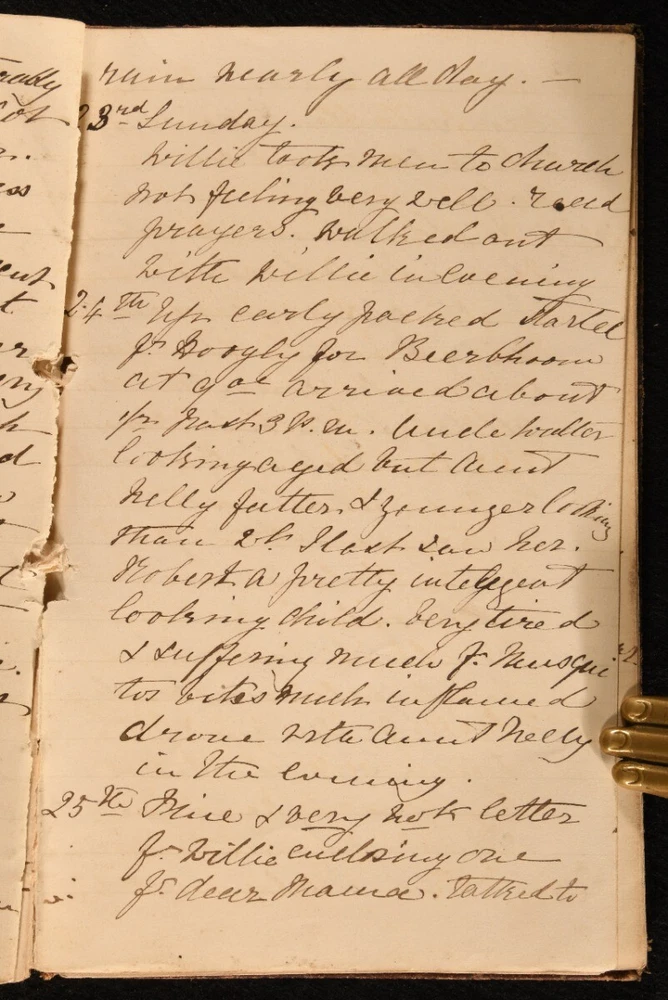 rain nearly all day. —
23rd Sunday.
Willie took men to church
not feeling very well. read
prayers. walked out
with Willie in evening
24th Up early packed started
fr Hoogly for Beerbhoom
at 9 arrived about
1/2 past 3 P.M. Uncle Walter
looking aged but Aunt
Nelly fatter & younger looking
than wh I last saw her.
Robert a pretty intelligent
looking child. Very tired
& suffering much fr Musqui
tos bites much inflamed
drove with Aunt Nelly
in the evening.
25th Fine & very hot letter
fr Willie enclosing one
fr dear Mama. talked to